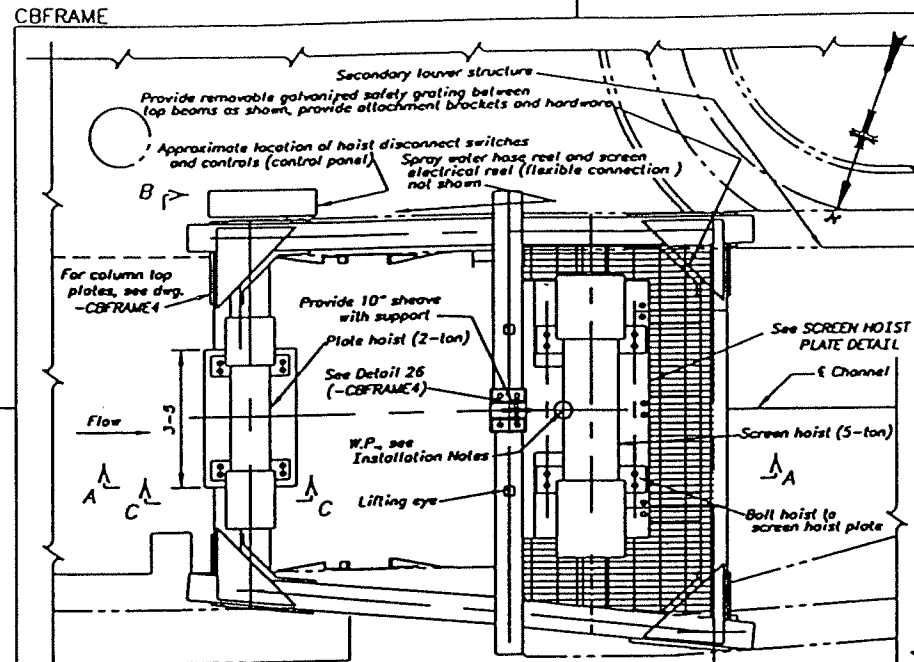 CBFRAME
Secondary louver structure
Provide removable galvanized safety grating between
top beams as shown, provide attachment brackets and hardware
Approximate location of hoist disconnect switches
and controls (control panel)
Spray water hose reel and screen
electrical reel (flexible connection )
not shown
B
For column top
plates, see dwg.
-CBFRAME4
Provide 10" sheave
with support
Plate hoist (2-ton)
See SCREEN HOIST
PLATE DETAIL
See Detail 26
(-CBFRAME4)
℄ Channel
3-5
Flow
W.P., see
Installation Notes
Screen hoist (5-ton)
A
C
C
A
Lifting eye
Bolt hoist to
screen hoist plate